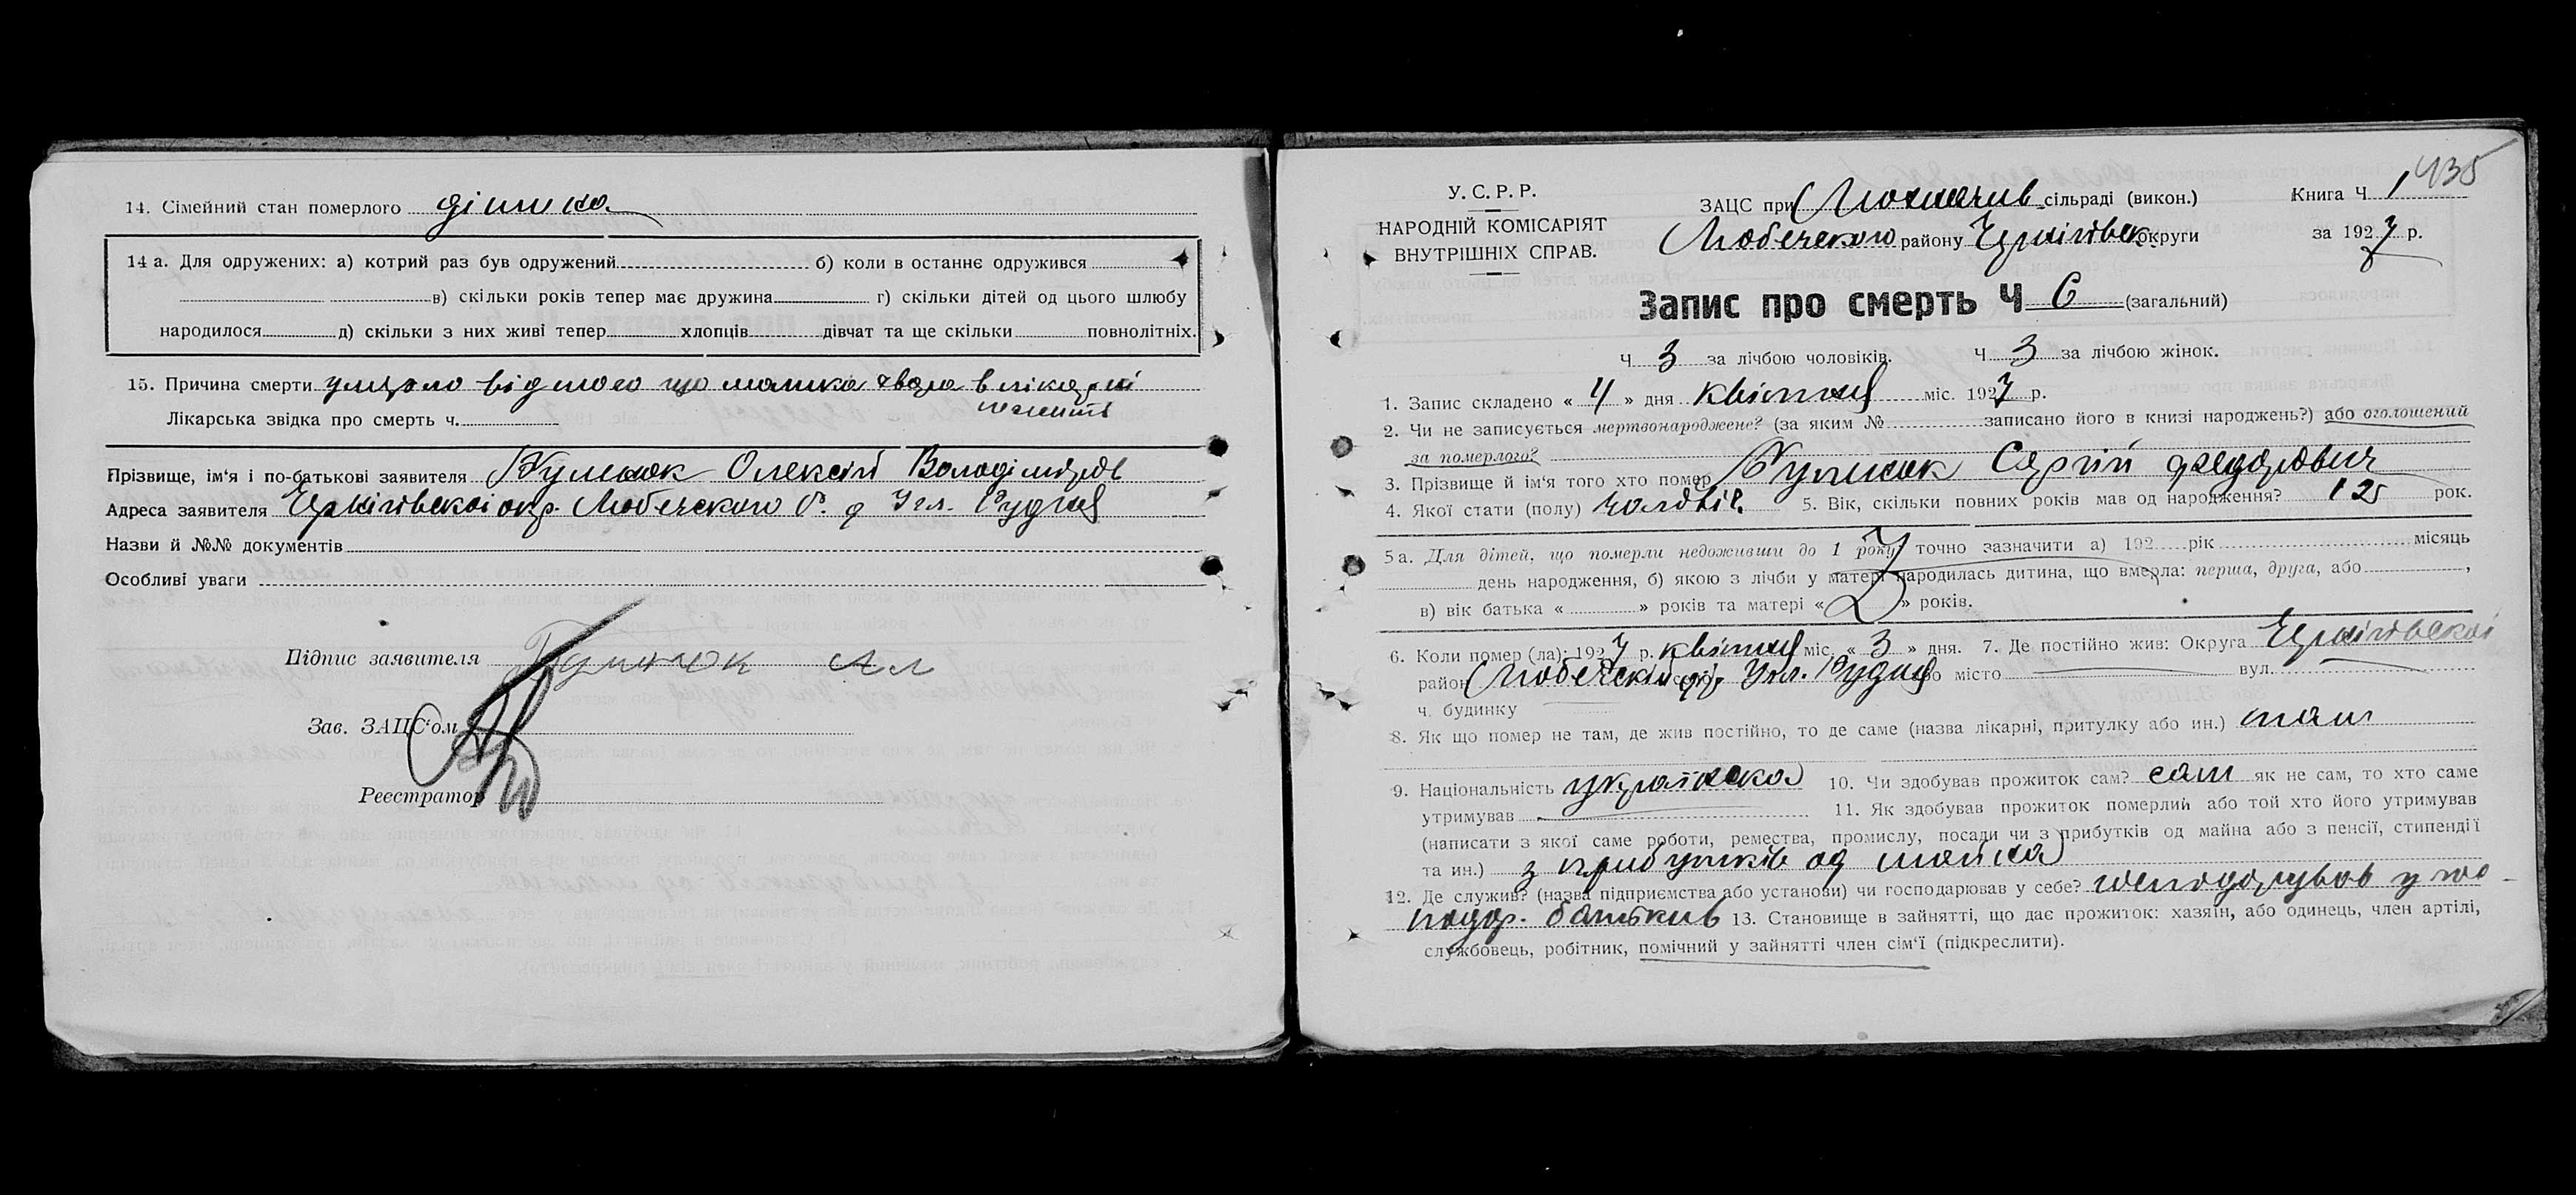 14. Сімейний стан померлого дітина
14 а. Для одружених: а) котрий раз був одружений б) коли в останнє одружився
в) скільки років тепер має дружина г) скільки дітей од цього шлюбу
народилося д) скільки з них живі тепер хлопців дівчат та ще скільки повнолітніх.
15. Причина смерти умерло від того що матка в лікарні
лежить
Лікарська звідка про смерть ч.
Прізвище, ім'я і по-батькові заявителя Олексій
Адреса заявителя Чернігівскоі окр. Любечского Р. д Угл. Рудня
Назви й №№ документів
Особливі уваги
Підпис заявителя
Зав. ЗАЦС'ом
Реєстратор
435
У. С. Р. Р.
НАРОДНІЙ КОМІСАРІЯТ
ВНУТРІШНІХ СПРАВ.
ЗАЦС при сільраді (викон.)
Любечского району Чернігівск округи
Книга Ч 1
за 1927 р.
Запис про смерть Ч 6 (загальний)
Ч 3 за лічбою чоловіків. Ч 3 за лічбою жінок.
1. Запис складено « 4 » дня квітня міс. 1927 р.
2. Чи не записується мертвонароджене? (за яким № записано його в книзі народжень?) або оголошений
за померлого?
3. Прізвище й ім'я того хто помер Сергій Федорович
4. Якої стати (полу) чоловіч. 5. Вік, скільки повних років мав од народження? рок.
5 а. Для дітей, що померли недоживши до 1 року, точно зазначити а) 192 рік місяць
день народження, б) якою з лічби у матері народилась дитина, що вмерла: перша, друга, або ,
в) вік батька « » років та матері « » років.
6. Коли помер (ла): 1927 р. квітня міс. « 3 » дня. 7. Де постійно жив: Округа Чернігівскоі
район Любечский Угл. Рудня або місто вул.
ч. будинку
8. Як що помер не там, де жив постійно, то де саме (назва лікарні, притулку або ин.) там
9. Національність українска 10. Чи здобував прожиток сам? сам як не сам, то хто саме
утримував 11. Як здобував прожиток померлий або той хто його утримував
(написати з якої саме роботи, ремества, промислу, посади чи з прибутків од майна або з пенсії, стипендії
та ин.) з прибутків од майна
12. Де служив? (назва підприємства або установи) чи господарював у себе? господарував у го-
подар. батьків 13. Становище в зайнятті, що дає прожиток: хазяїн, або одинець, член артілі,
службовець, робітник, помічний у зайнятті член сім'ї (підкреслити).